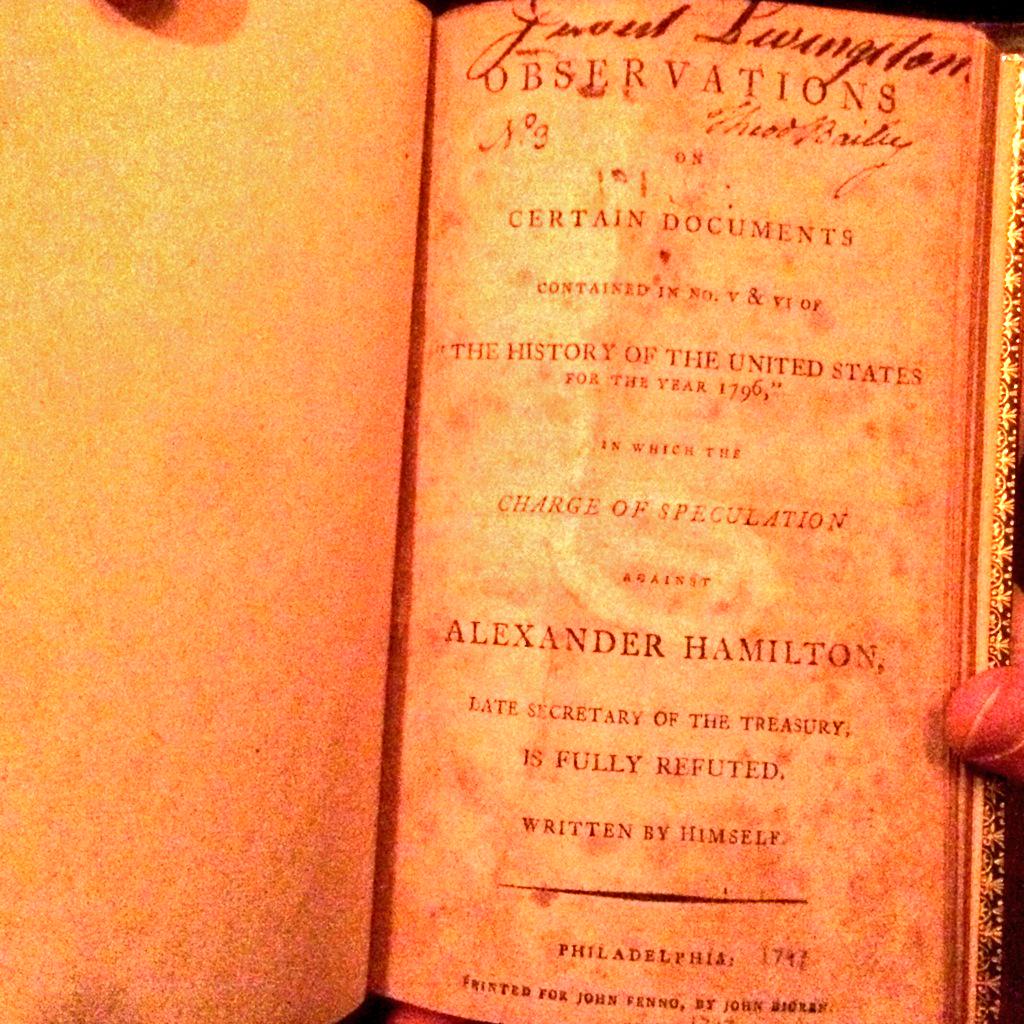 Livingston.
OBSERVATIONS
Nº 3
Theod Bailey
ON
CERTAIN DOCUMENTS
CONTAINED IN NO. V & VI OF
"THE HISTORY OF THE UNITED STATES
FOR THE YEAR 1796,"
IN WHICH THE
CHARGE OF SPECULATION
AGAINST
ALEXANDER HAMILTON,
LATE SECRETARY OF THE TREASURY,
IS FULLY REFUTED.
WRITTEN BY HIMSELF.
PHILADELPHIA: 1797
PRINTED FOR JOHN FENNO, BY JOHN BIOREN.